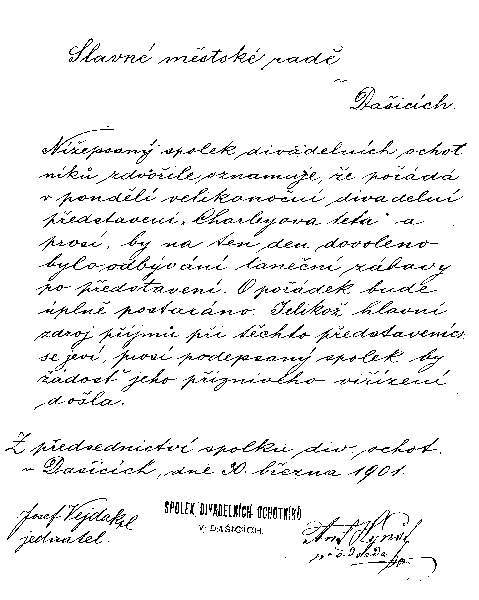 Slavné městské radě
v
Dašicích.
Nížepsaný spolek divadelních ochot
níků zdvořile oznamuje, že pořádá
v pondělí velikonoční divadelní
představení „Charleyova teta" a
prosí, by na ten den dovoleno
bylo odbývání taneční zábavy
po představení. O pořádek bude
úplně postaráno. Jelikož hlavní
zdroj příjmů při těchto představeních
se jeví, prosí podepsaný spolek by
žádost jeho příznivého vířízení
došla.
Z předsednictví spolku div. ochot.
v Dašicích, dne 30. března 1901.
Josef Vejdakal
jednatel.
SPOLEK DIVADELNÍCH OCHOTNÍKŮ
V DAŠICÍCH.
Ant.
předseda